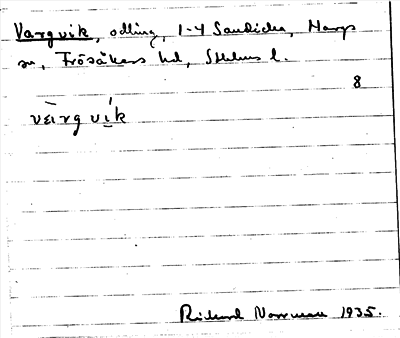 Vargvik, odling, 1-4 Sandika, Harg
sn, Frösåkers hd, Sthlms l.
8
värgvik
Rickard Norrman 1935.